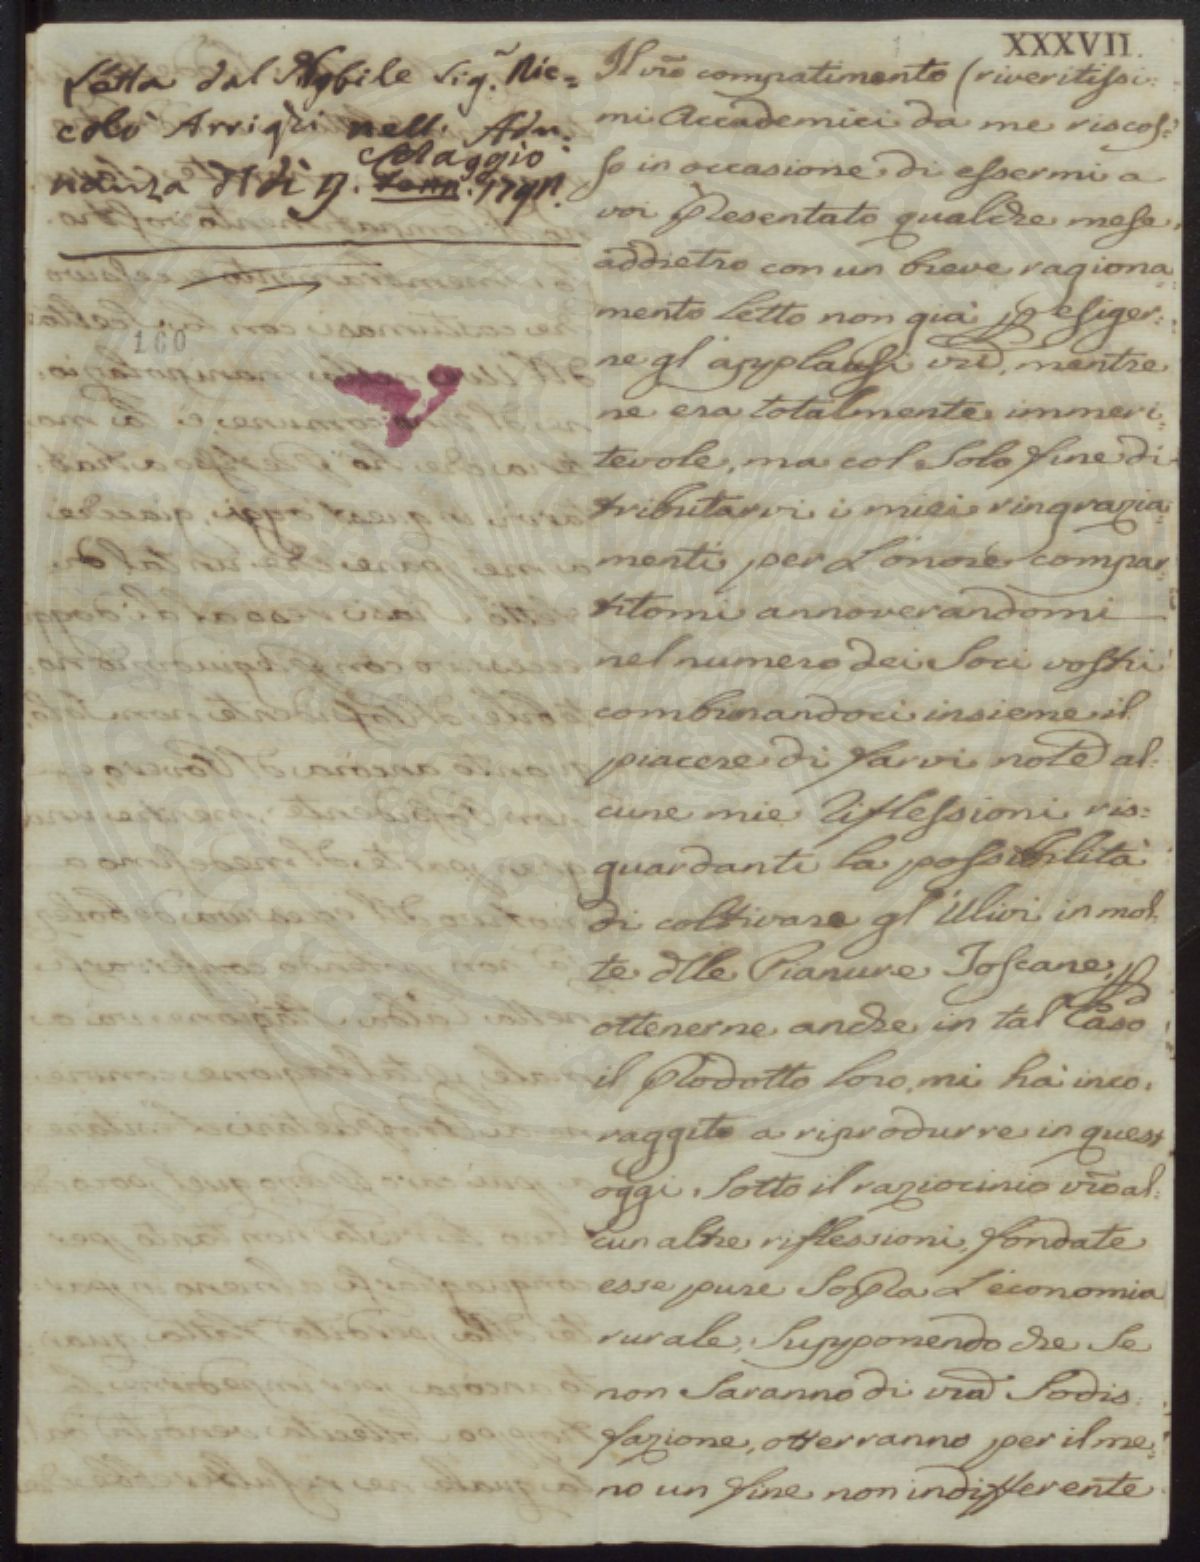 XXXVII.
Letta dal Nobile Sig.r Nic=
colò Arrighi nell' Adu-
Maggio
nanza del dì 9. Genn. 1791.
160
Il vr̃o compatimento (riveritissi-
mi Accademici da me riscos-
so in occasione di essermi a
voi Presentato qualche mese
addietro con un breve ragiona
mento letto non già p esiger-
ne gl'applausi vrĩ, mentre
ne era totalmente immeri-
tevole, ma col Solo fine di
tributarvi i miei ringrazia-
menti per L'onore compar-
titomi annoverandomi
nel numero dei Soci vostri
combinandoci insieme il
piacere di farvi note al-
cune mie Riflessioni ris=
guardanti la possibilità
di coltivare gl'Ulivi in mol-
te dlle Pianure Toscane, p
ottenerne anche in tal Caso
il Prodotto loro, mi ha inco-
raggito a riprodurre in quest'
oggi Sotto il raziocinio vrõ al-
cun altre riflessioni, fondate
esse pure Sopra L'economia
rurale, Supponendo che Se
non Saranno di vrã Sodis-
fazione, otterranno per il me-
no un fine non indifferente